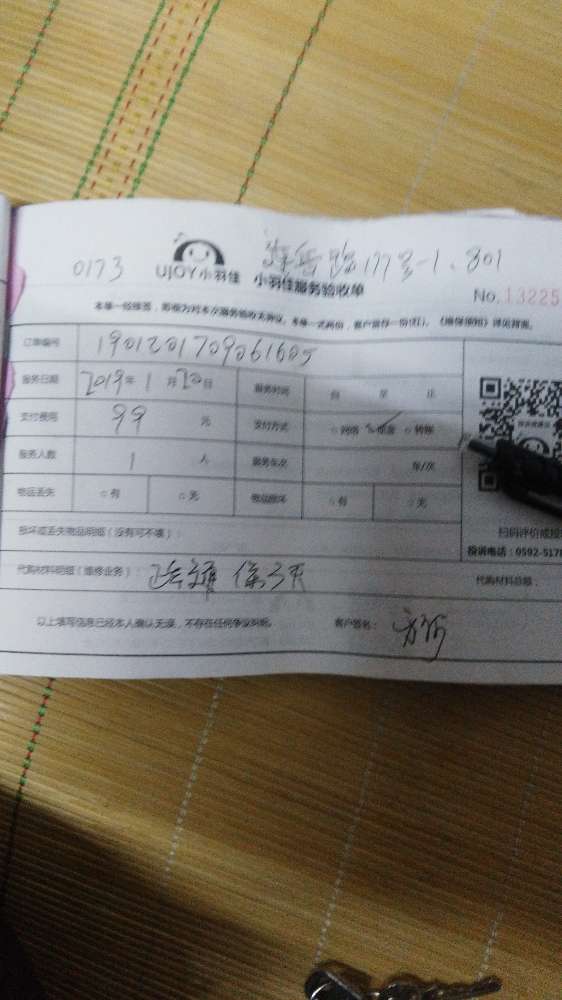 0173 UJOY小羽佳 路177号-1、801
小羽佳服务验收单
No.13225
本单一经签署,即视为对本次服务验收无异议。本单一式两份,客户留存一份(红)。《维保须知》详见背面。
订单编号 1901201709061605
服务日期 2019年 1月20日 服务时间 自 至 止
支付费用 99 元 支付方式 ○网络 ○现金 ○转账
服务人数 1 人 服务车次 车/次
物品丢失 ○有 ○无 物品损坏 ○有 ○无
损坏或丢失物品明细(没有可不填):
扫码评价或投
投诉电话:0592-5178
代购材料明细(维修业务): 疏通 保3天 代购材料总额:
以上填写信息已经本人确认无误,不存在任何争议纠纷。 客户签名: